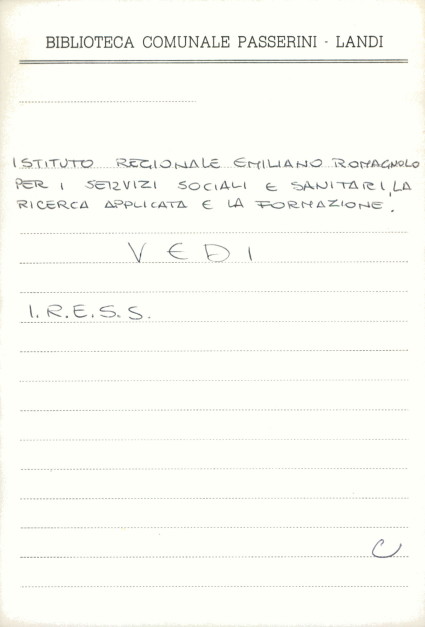 BIBLIOTECA COMUNALE PASSERINI - LANDI
ISTITUTO REGIONALE EMILIANO ROMAGNOLO
PER I SERVIZI SOCIALI E SANITARI, LA
RICERCA APPLICATA E LA FORMAZIONE.
VEDI
I.R.E.S.S.
C